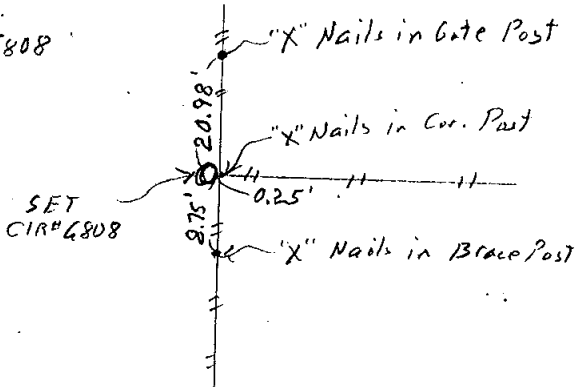 6808
"X" Nails in Gate Post
20.98'
"X" Nails in Cor. Post
0.25'
SET
CIR#6808
8.75'
"X" Nails in Brace Post